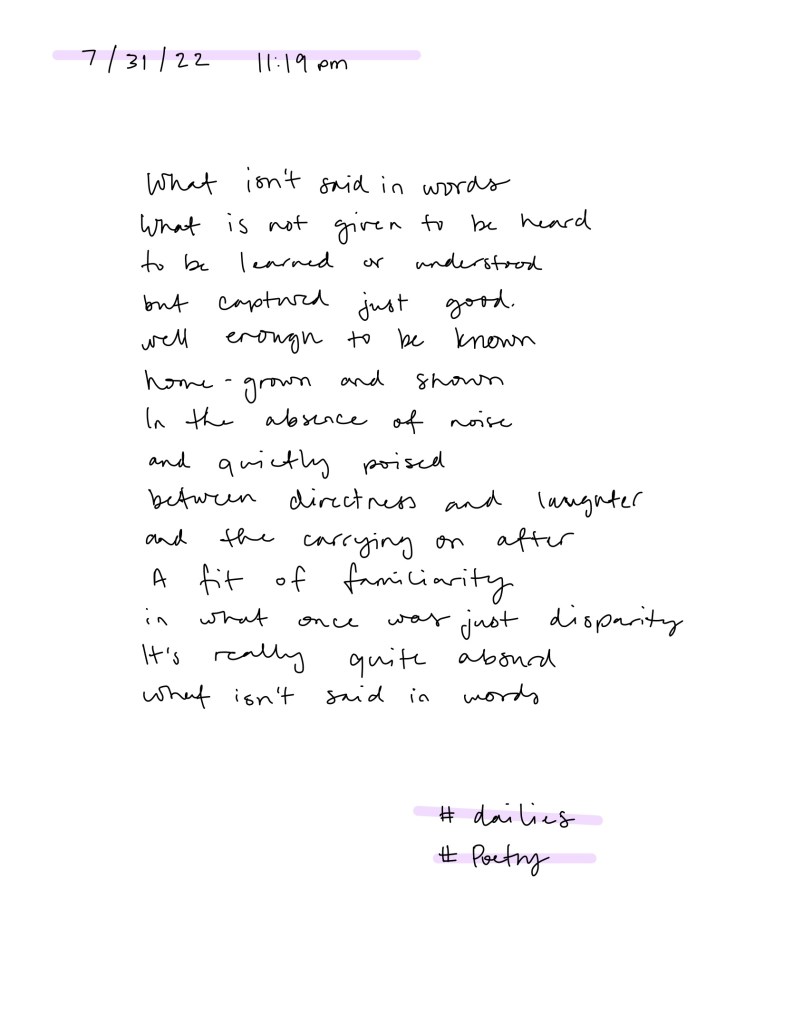 7/31/22 11:19 pm
What isn't said in words
What is not given to be heard
to be learned or understood
but captured just good.
well enough to be known
home-grown and shown
In the absence of noise
and quietly poised
between directness and laughter
and the carrying on after
A fit of familiarity
in what once was just disparity
It's really quite absurd
what isn't said in words
# dailies
# Poetry